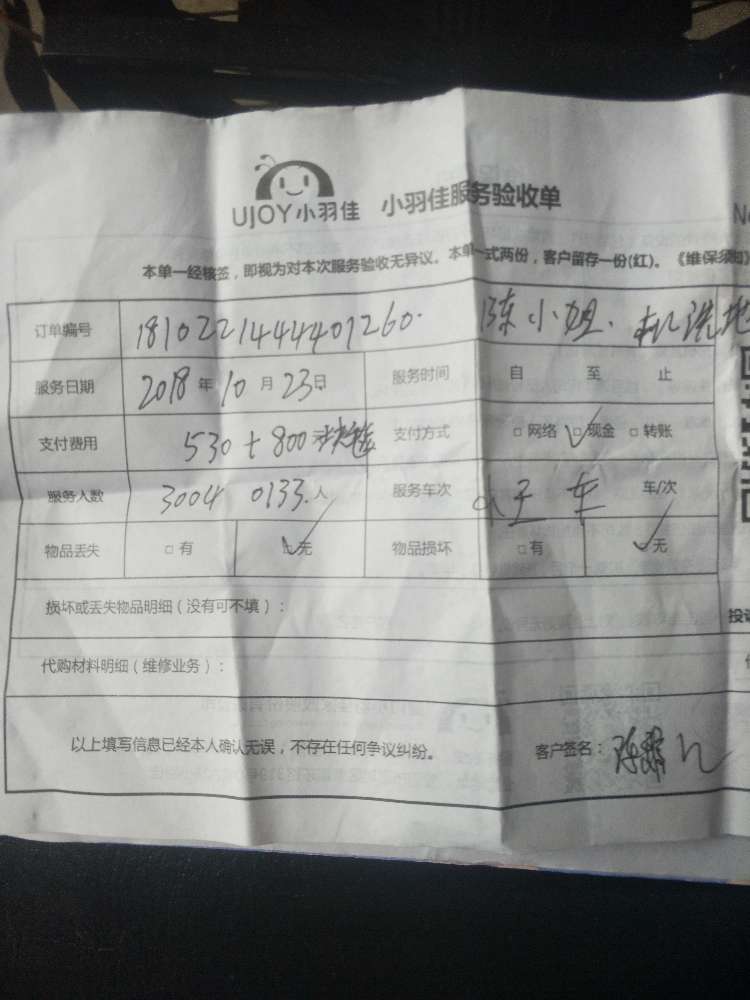 UJOY小羽佳 小羽佳服务验收单
本单一经核签，即视为对本次服务验收无异议。本单一式两份，客户留存一份(红)。《维保须知》
订单编号 181022144401260. 陈小姐. 机洗地
服务日期 2018年10月23日 服务时间 自 至 止
支付费用 530+800 支付方式 □网络 ☑现金 □转账
服务人数 3004 0133.人 服务车次 小王 车 车/次
物品丢失 □有 ☑无 物品损坏 □有 ☑无
损坏或丢失物品明细（没有可不填）：
投诉
代购材料明细（维修业务）：
以上填写信息已经本人确认无误，不存在任何争议纠纷。 客户签名：陈